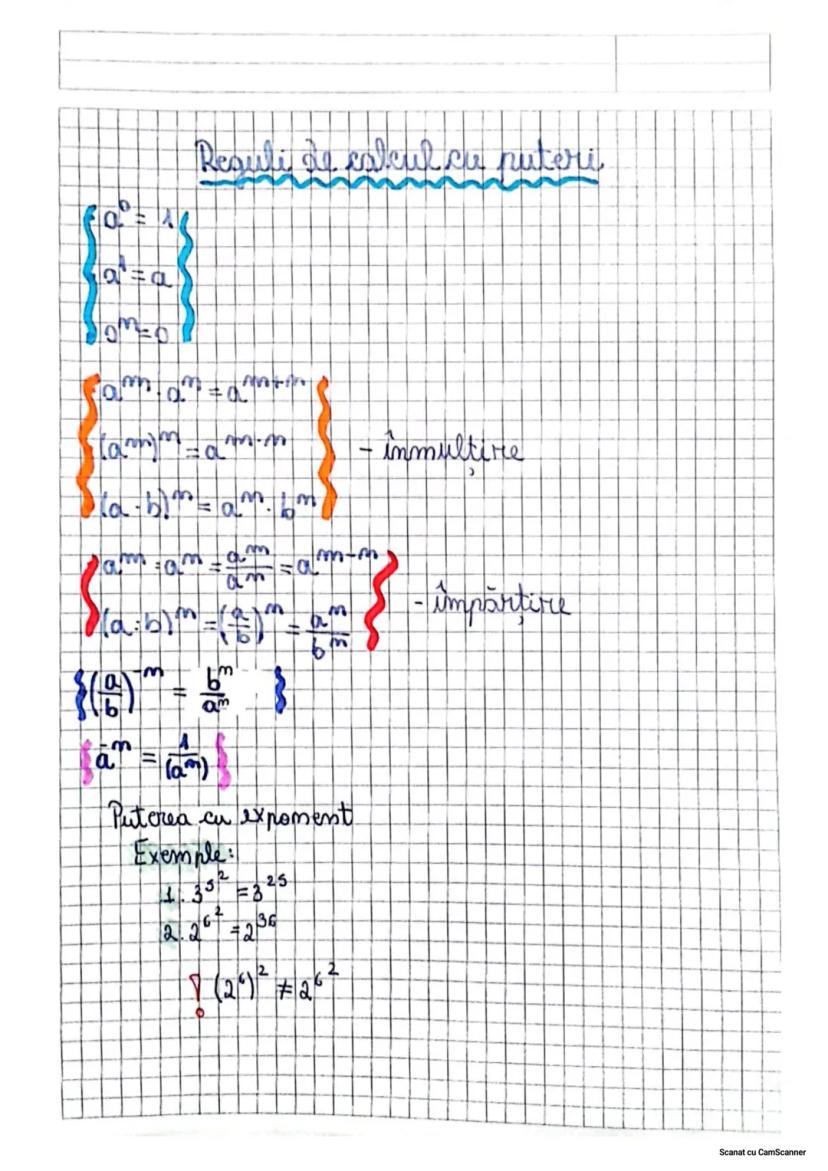 Reguli de calcul cu puteri
a⁰ = 1
a¹ = a
0ⁿ = 0
aᵐ · aⁿ = aᵐ⁺ⁿ
(aᵐ)ⁿ = aᵐ·ⁿ
- înmulțire
(a · b)ⁿ = aⁿ · bⁿ
aᵐ : aⁿ = aᵐ/aⁿ = aᵐ⁻ⁿ
- împărțire
(a : b)ᵐ = (a/b)ᵐ = aᵐ/bᵐ
(a/b)⁻ⁿ = bⁿ/aⁿ
a⁻ⁿ = 1/(aⁿ)
Puterea cu exponent
Exemple:
1. 3^5^2 = 3^25
2. 2^6^2 = 2^36
! (2^6)^2 ≠ 2^6^2
Scanat cu CamScanner